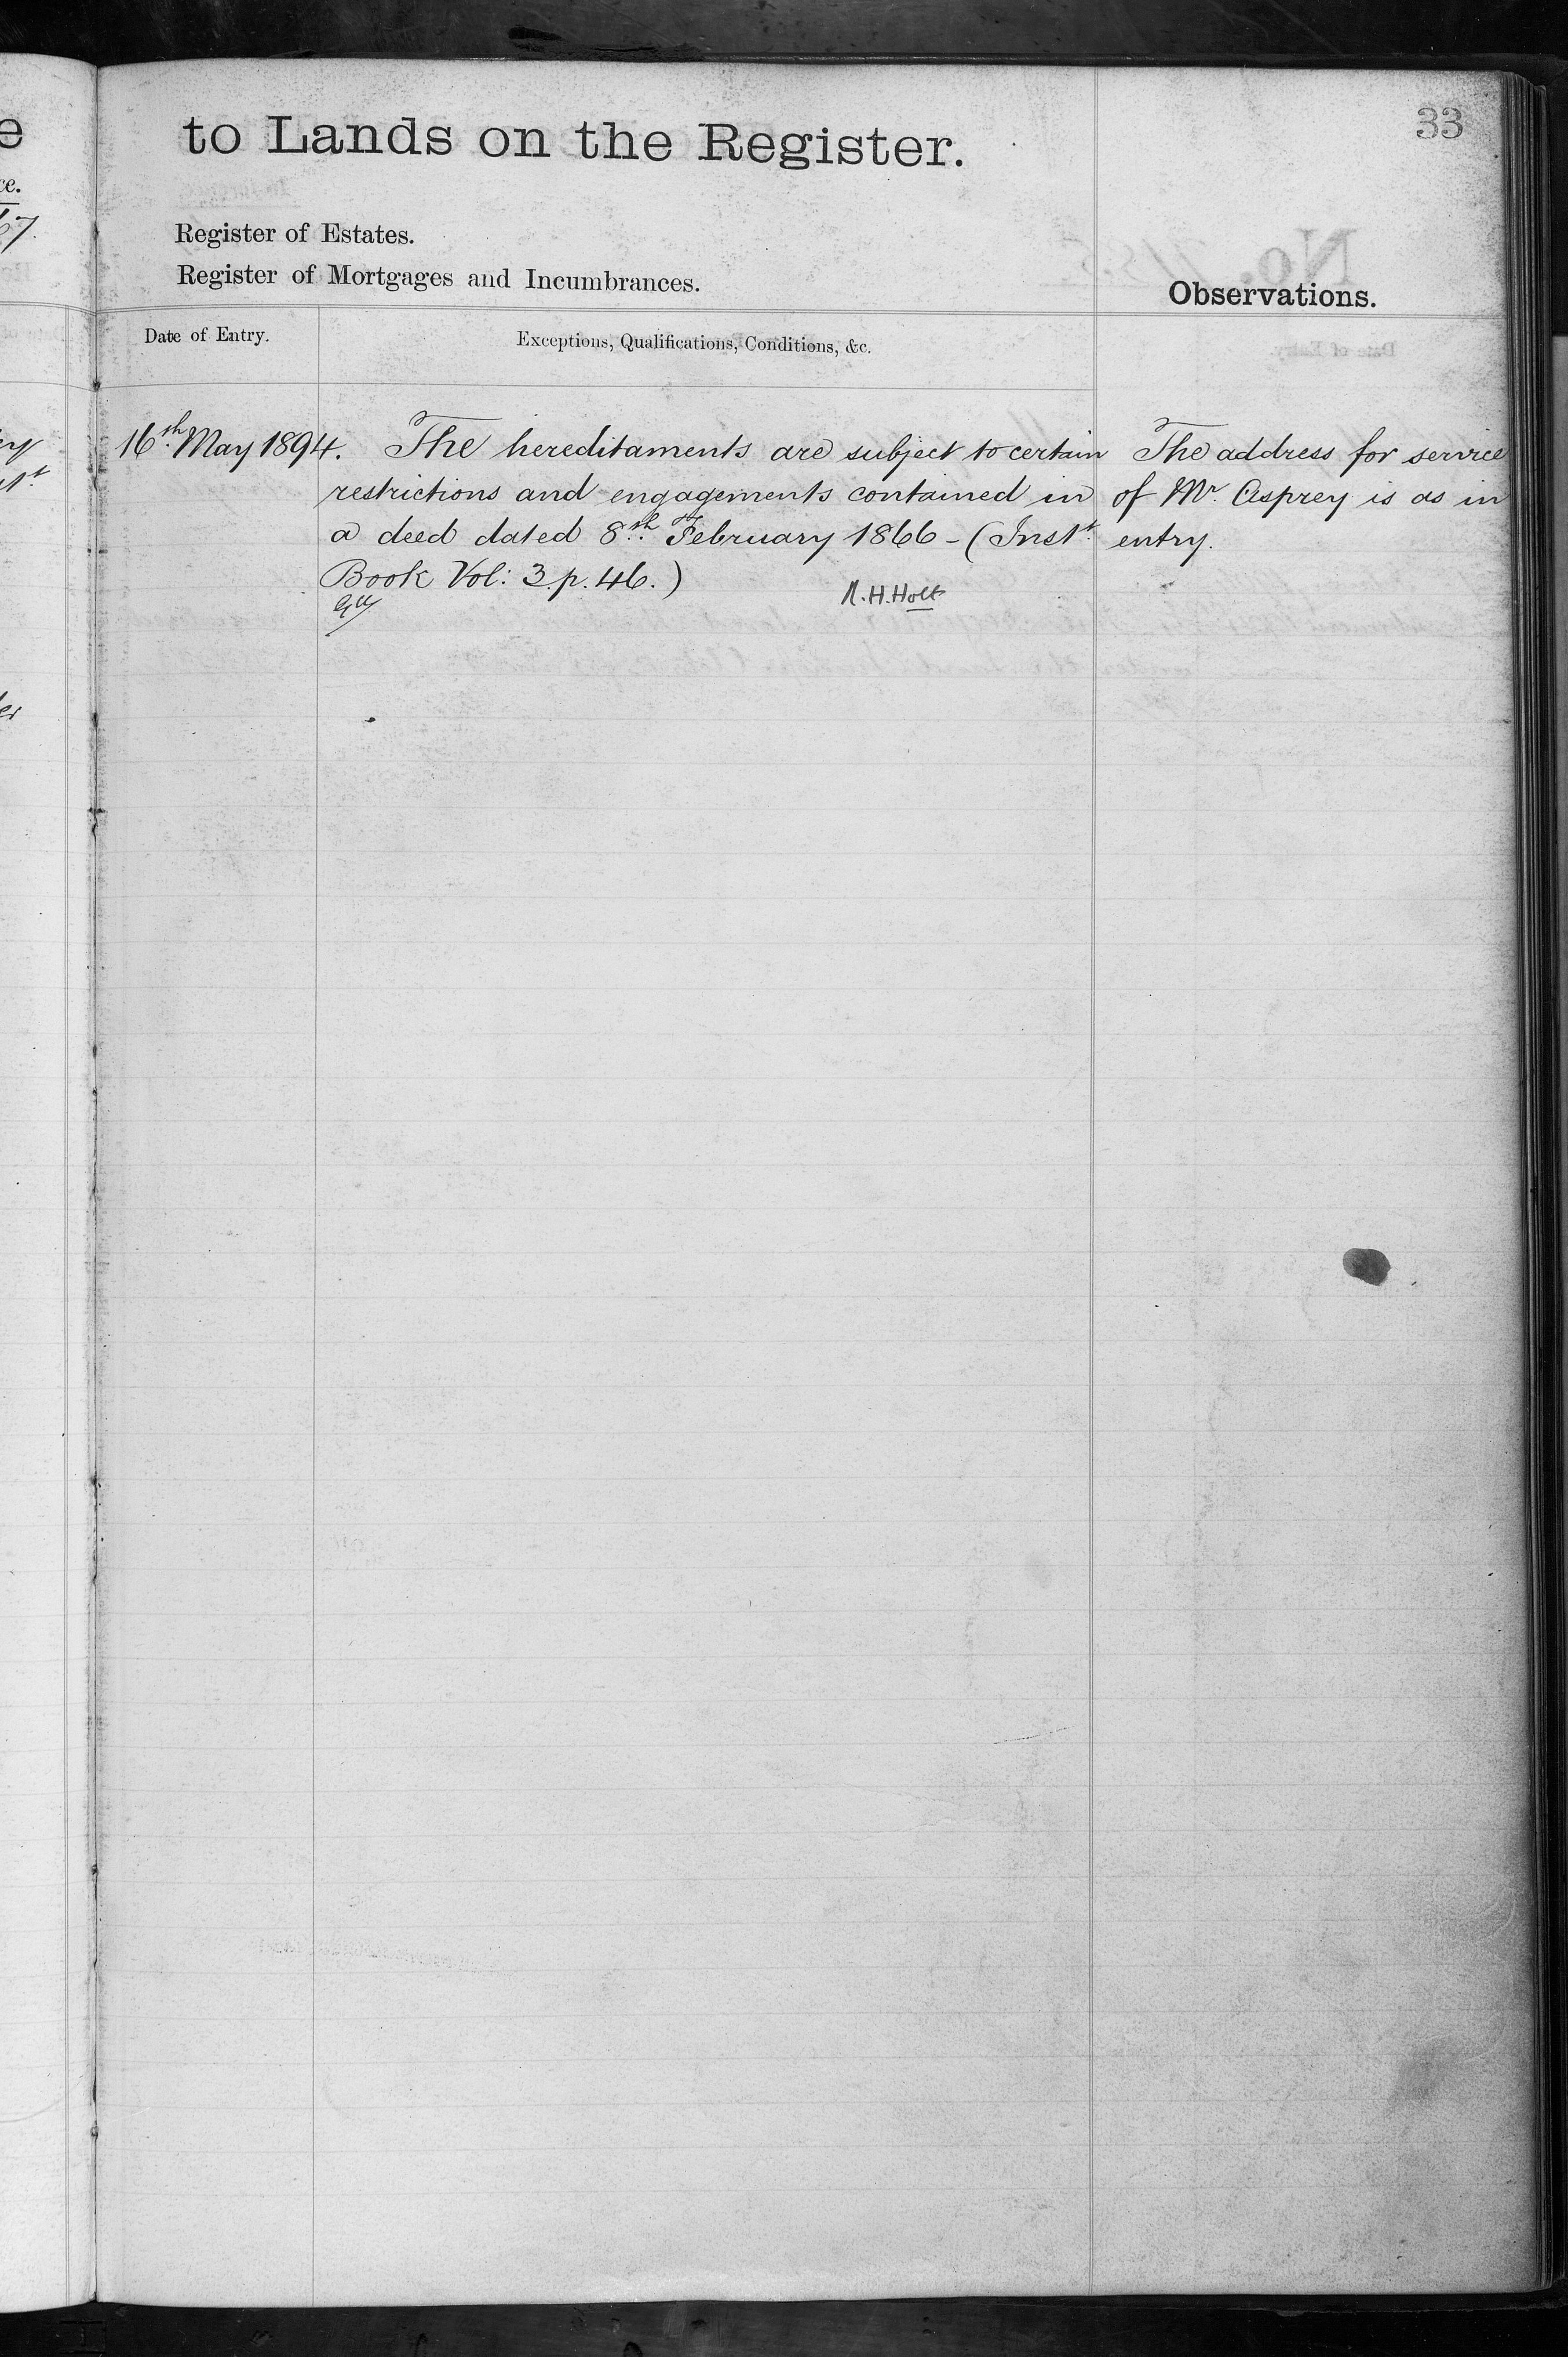 33
to Lands on the Register.
Register of Estates.
Register of Mortgages and Incumbrances.
Observations.
Date of Entry.
Exceptions, Qualifications, Conditions, &c.
16th May 1894.
The hereditaments are subject to certain
restrictions and engagements contained in
a deed dated 8th February 1866 - (Instt
Book Vol: 3. p. 46.)
H. Holt
The address for service
of Mr. Asprey is as in
entry.